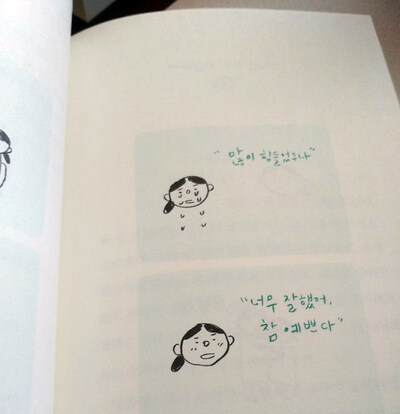 "많이 힘들었구나"
"너무 잘했어,
참 예쁘다"